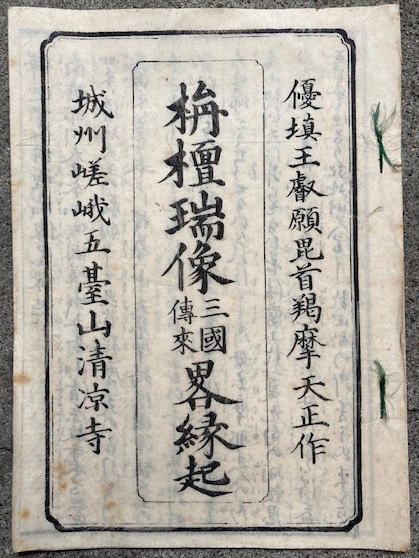 優填王叡願毘首羯摩天正作
栴檀瑞像三國傳來畧縁起
城州嵯峨五臺山清凉寺